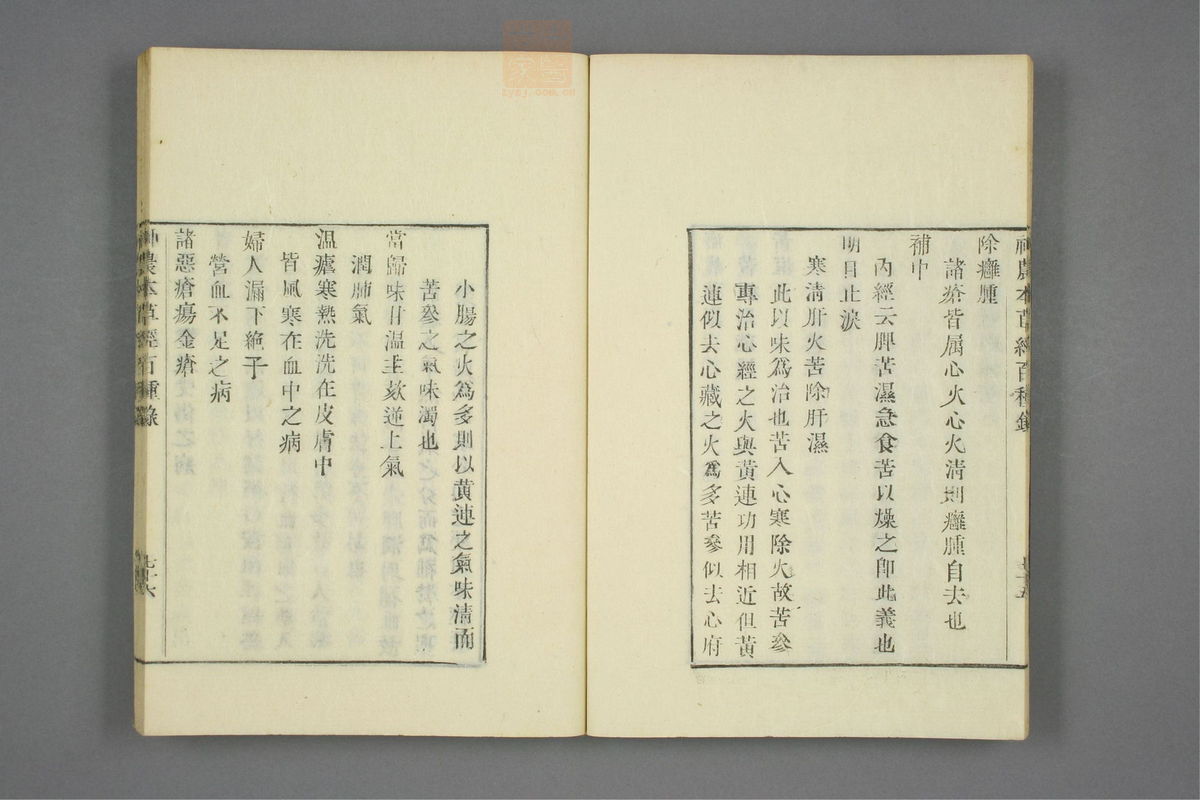 神農本草經百種錄
七十五
除癰腫
諸瘡皆属心火心火淸則癰腫自去也
補中
內經云脾苦濕急食苦以燥之卽此義也
明目止淚
寒淸肝火苦除肝濕
此以味爲治也苦入心寒除火故苦參
專治心經之火與黃連功用相近但黃
連似去心藏之火爲多苦參似去心府
小腸之火爲多則以黃連之氣味淸而
苦參之氣味濁也
當歸味甘温主欬逆上氣
潤肺氣
温瘧寒熱洗洗在皮膚中
皆風寒在血中之病
婦人漏下絶子
營血不足之病
諸惡瘡瘍金瘡
神農本草經百種錄
七十六
zysj.com.cn